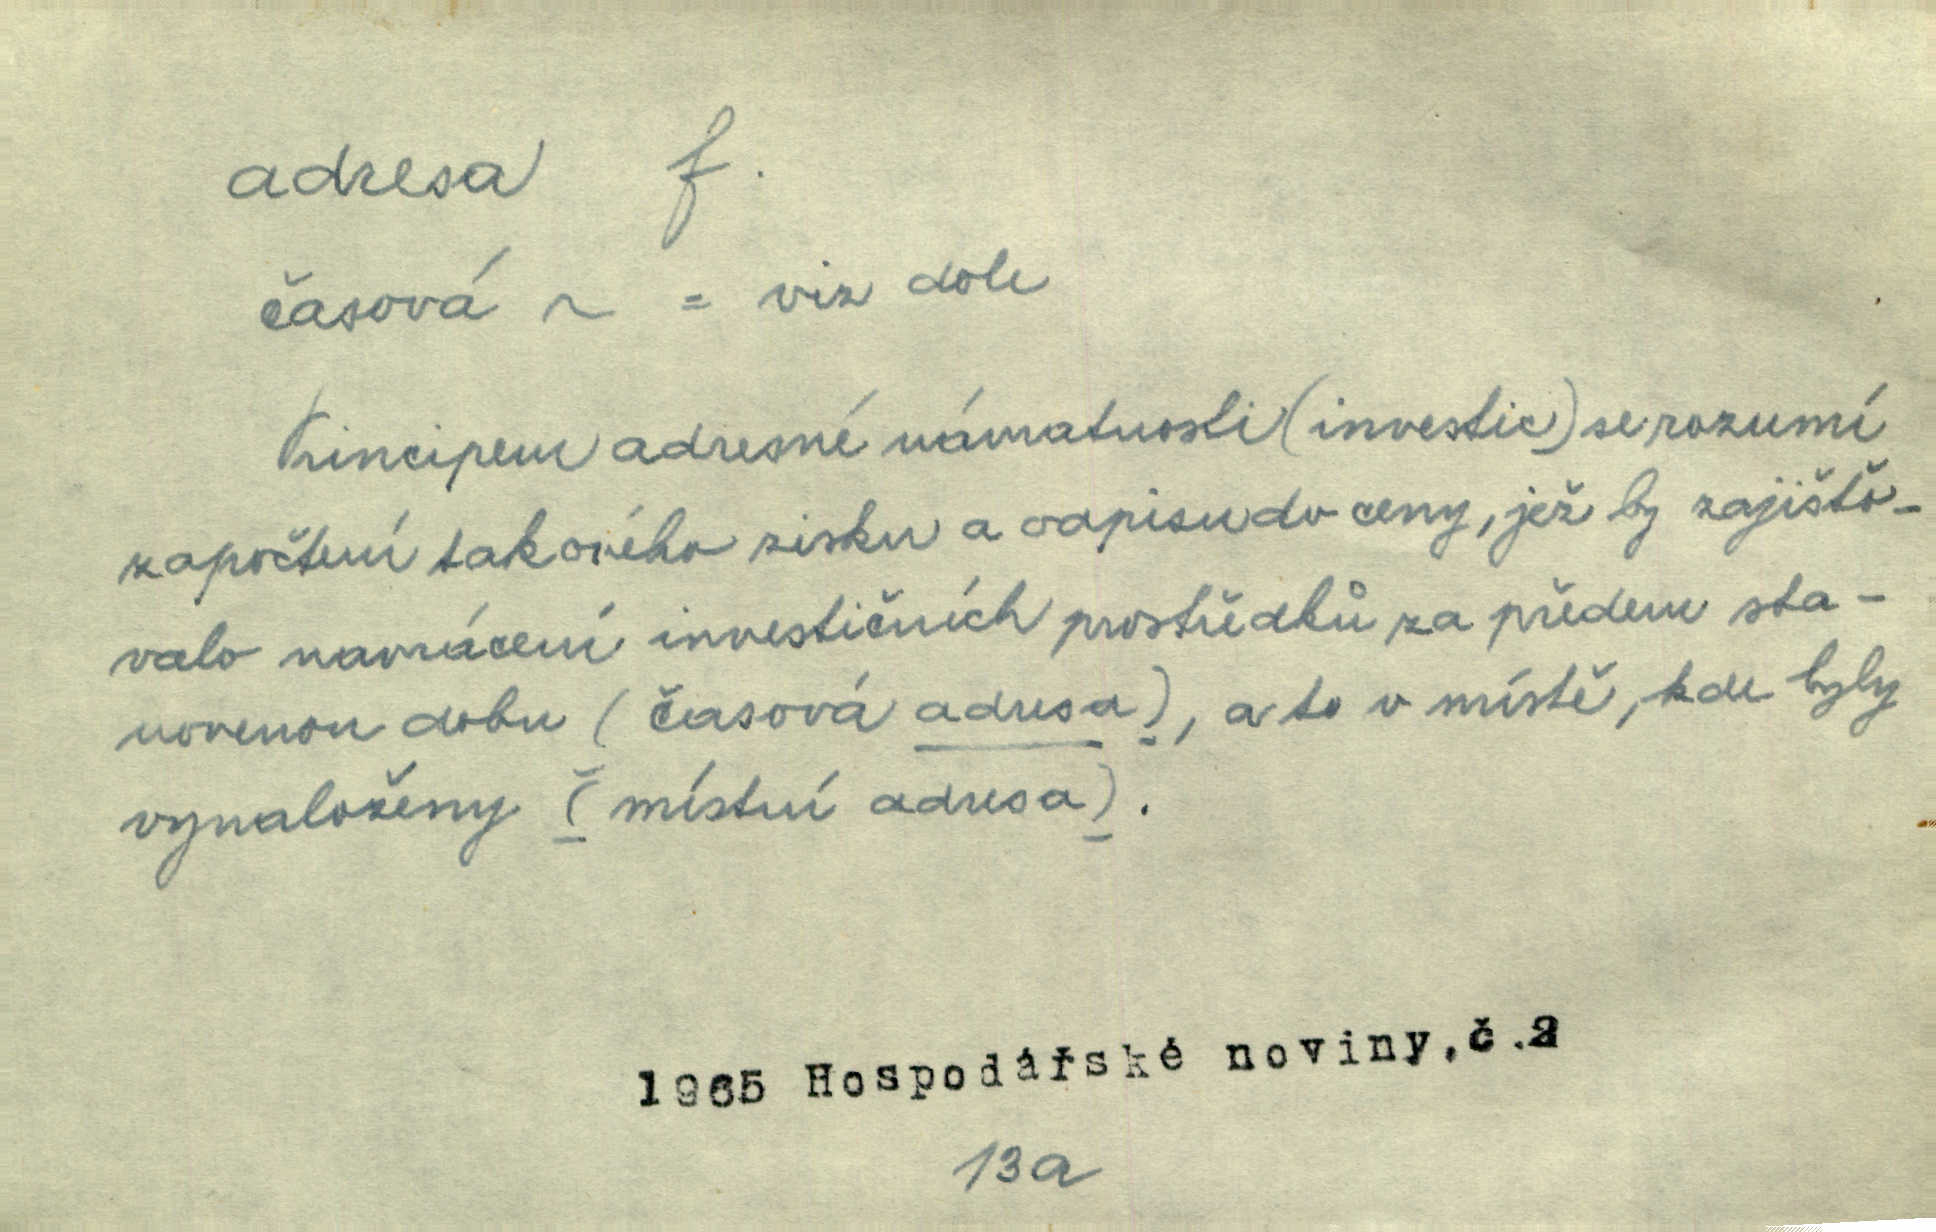 adresa f.
časová ~ = viz dole
Principem adresné návratnosti (investic) se rozumí
započtení takového zisku a odpisu do ceny, jež by zajišťo-
valo navrácení investičních prostředků za předem sta-
novenou dobu (časová adresa), a to v místě, kde byly
vynaloženy (místní adresa).
1965 Hospodářské noviny, č.2
13a